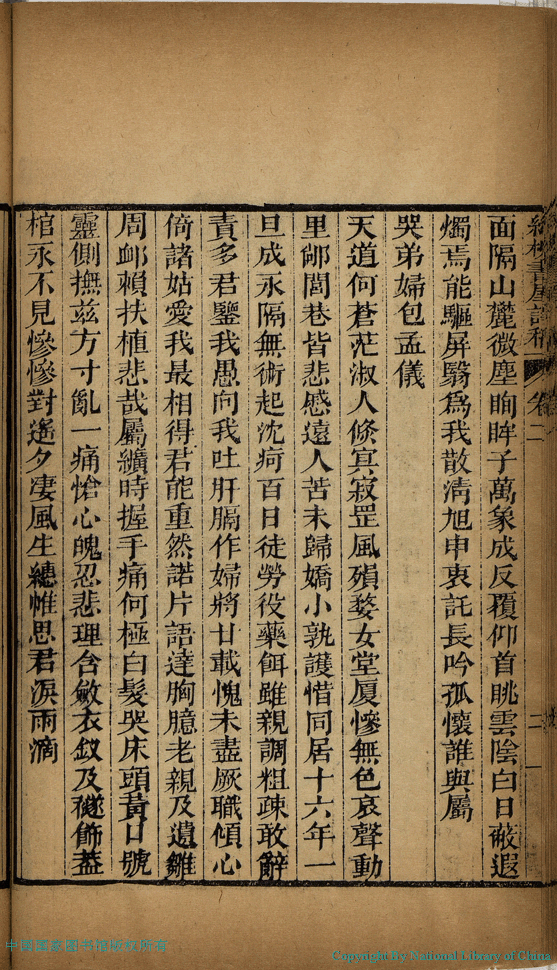 書屋詩稿 卷二 二
面隔山麓微塵眴眸子萬象成反覆仰首眺雲陰白日蔽遐
燭焉能驅屏翳為我散清旭申衷託長吟孤懷誰與屬
哭弟婦包孟儀
天道何蒼茫淑人倏冥寂罡風殞婺女堂厦慘無色哀聲動
里鄰閭巷皆悲慼遠人苦未歸嬌小孰護惜同居十六年一
旦成永隔無術起沈疴百日徒勞役藥餌雖親調粗疎敢辭
責多君鑒我愚向我吐肝膈作婦將廿載愧未盡厥職傾心
倚諸姑愛我最相得君能重然諾片語達胸臆老親及遺雛
周卹賴扶植悲哉屬纊時握手痛何極白髮哭床頭黃口號
靈側撫茲方寸亂一痛愴心魄忍悲理含斂衣釵及襚飾蓋
棺永不見慘慘對遙夕淒風生繐帷思君淚雨滴
中國國家圖書館版权所有
Copyright by National Library of China